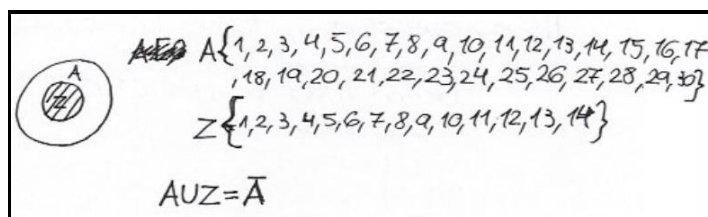 A{1,2,3,4,5,6,7,8,9,10,11,12,13,14,15,16,17
,18,19,20,21,22,23,24,25,26,27,28,29,30}
A
Z
Z{1,2,3,4,5,6,7,8,9,10,11,12,13,14}
AUZ=Ā